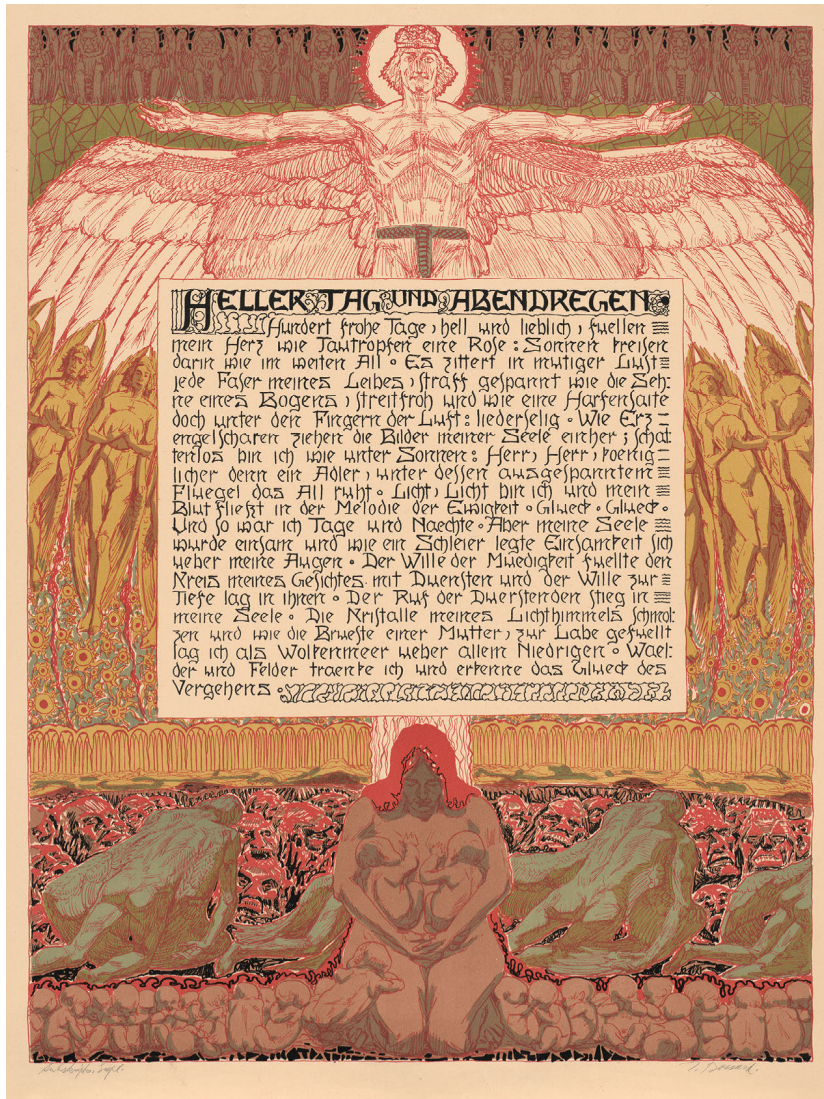 HELLER TAG UND ABENDREGEN
Hundert frohe Tage, hell und lieblich, fuellen
mein Herz wie Tautropfen eine Rose: Sonnen kreisen
darin wie im weiten All. Es zittert in mutiger Lust
jede Faser meines Leibes, straff gespannt wie die Seh-
ne eines Bogens, streitfroh und wie eine Harfensaite
doch unter den Fingern der Luft: liederselig. Wie Erz-
engelscharen ziehen die Bilder meiner Seele einher; schat
tenlos bin ich wie unter Sonnen: Herr, Herr, koenig-
licher denn ein Adler, unter dessen ausgespanntem
Fluegel das All ruht. Licht, Licht bin ich und mein
Blut fließt in der Melodie der Ewigkeit. Glueck. Glueck.
Und so war ich Tage und Naechte. Aber meine Seele
wurde einsam und wie ein Schleier legte Einsamkeit sich
ueber meine Augen. Der Wille der Muedigkeit fuellte den
Kreis meines Gesichtes mit Duensten und der Wille zur
Tiefe lag in ihnen. Der Ruf der Duerstenden stieg in
meine Seele. Die Kristalle meines Lichthimmels schmol:
zen und wie die Brueste einer Mutter, zur Labe geschwellt
lag ich als Wolkenmeer ueber allem Niedrigen. Wael:
der und Felder traenke ich und erkenne das Glueck des
Vergehens.